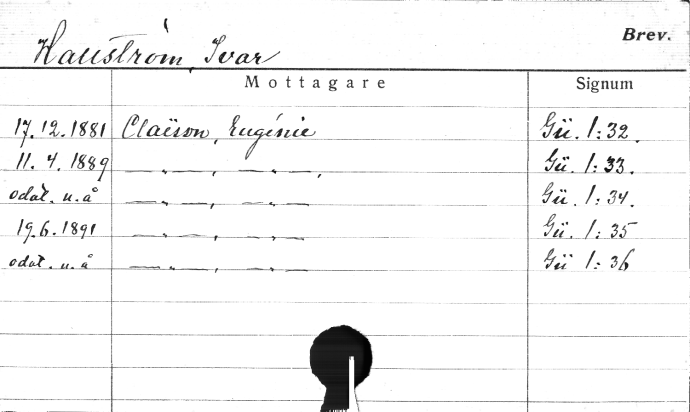 Brev.
Hallström, Ivar
Mottagare Signum
17.12.1881 Claëson, Eugénie Gü. 1:32.
11.4.1889 —„—, —„—, Gü. 1:33.
odat. u.å —„—, —„— Gü. 1:34.
19.6.1891 —„—, —„— Gü. 1:35
odat. u.å —„—, —„— Gü 1:36